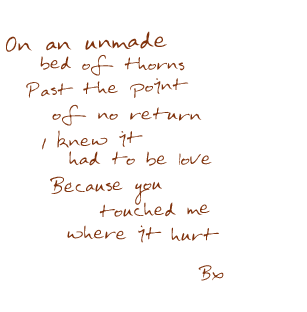 On an unmade
bed of thorns
Past the point
of no return
I knew it
had to be love
Because you
touched me
where it hurt
Bx